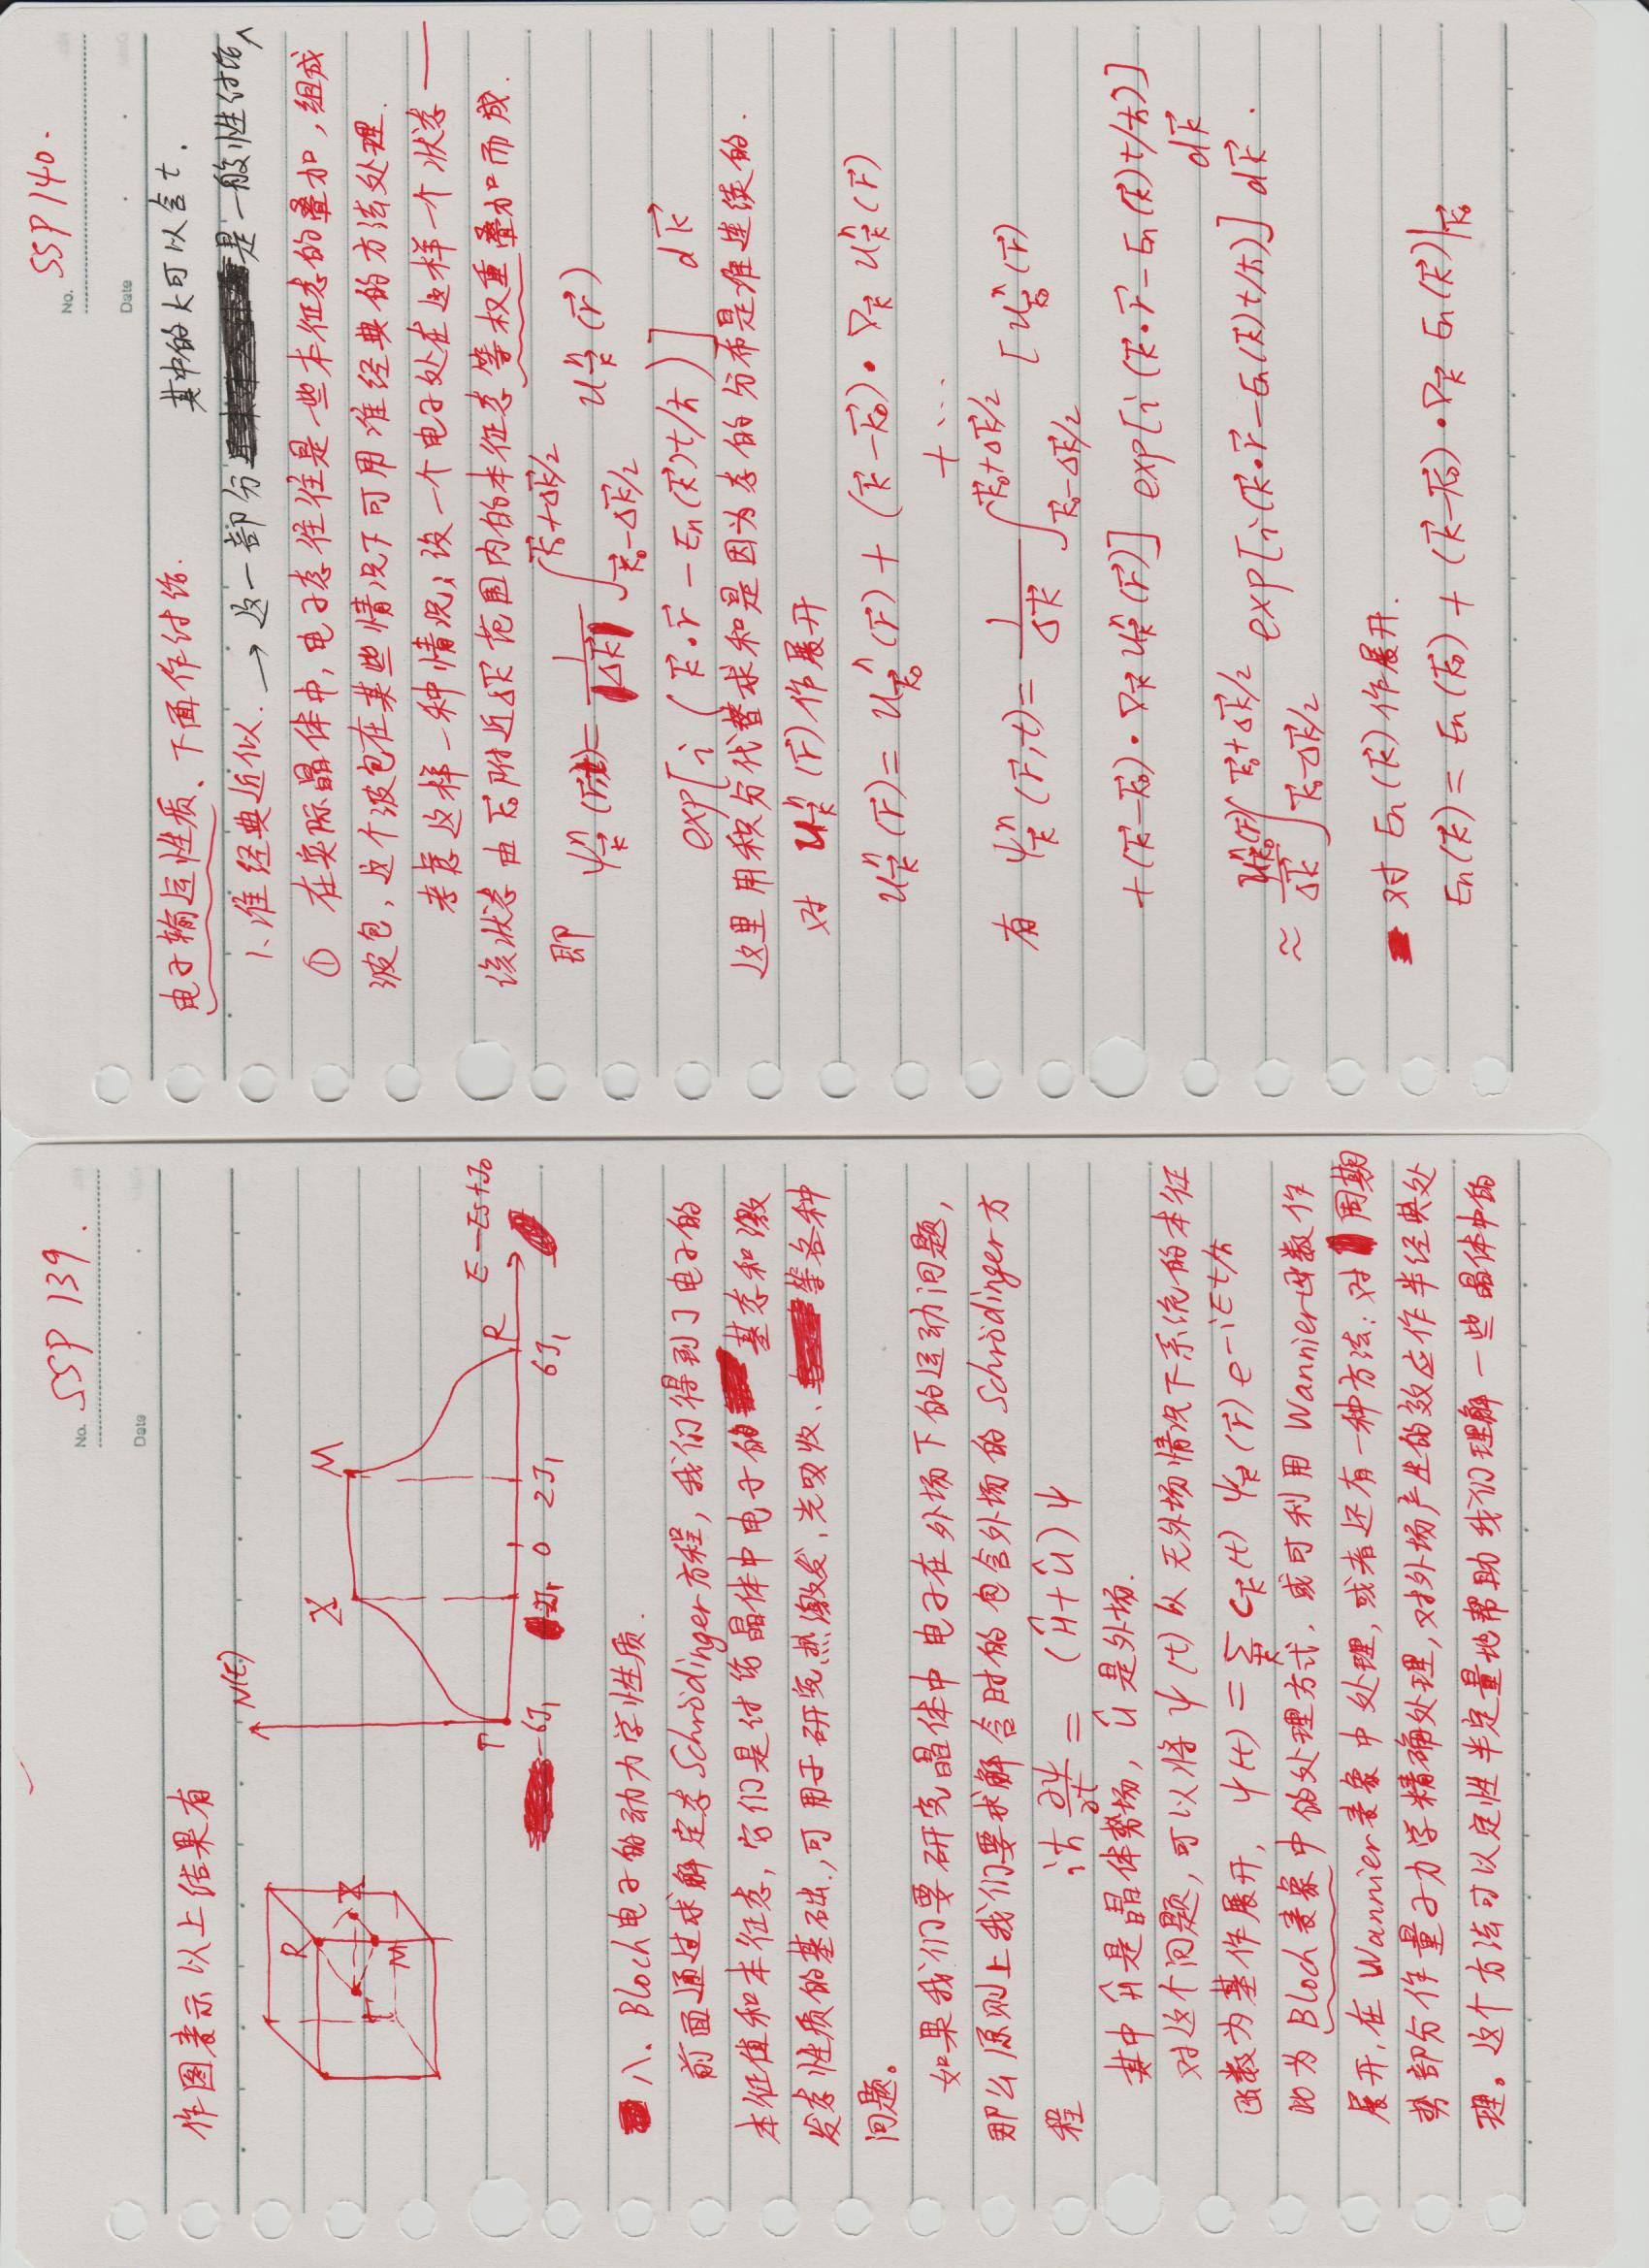 No. SSP 139.
Date
作图表示以上结果有
N(E)
R
X
M
Γ
X
M
Γ
R
E-Es+J₀
-6J₁
-2J₁
0
2J₁
6J₁
八、Bloch电子的动力学性质.
前面通过求解定态Schrödinger方程,我们得到了电子的
本征值和本征态,它们是讨论晶体中电子的基态和激
发态性质的基础.,可用于研究热激发、光吸收、等各种
问题。
如果我们要研究晶体中电子在外场下的运动问题,
那么原则上我们要求解含时的包含外场的Schrödinger方
程 iħ ∂ψ/∂t = (Ĥ+Û)ψ
其中Ĥ是晶体势场, Û是外场.
对这个问题,可以将ψ(t)以无外场情况下系统的本征
函数为基作展开, ψ(t) = Σ_k⃗ C_k⃗(t) ψ_k⃗(r⃗) e^{-iEt/ħ}
此为Bloch表象中的处理方式.或可利用Wannier函数作
展开,在Wannier表象中处理,或者还有一种方法:对周期
势部分作量子力学精确处理,对外场产生的效应作半经典处
理。这个方法可以定性半定量地帮助我们理解一些晶体中的
No. SSP 140.
Date
电子输运性质、下面作讨论.
其中的k可以含t.
1、准经典近似. → 这一部分是一般性讨论,
① 在实际晶体中,电子态往往是一些本征态的叠加,组成
波包,这个波包在某些情况下可用准经典的方法处理.
考虑这样一种情况:设一个电子处在这样一个状态——
该状态由k⃗₀附近Δk⃗范围内的本征态等权重叠加而成.
即 ψ^n_k⃗(r⃗,t) = 1/Δk⃗ ∫_{k⃗₀-Δk⃗/2}^{k⃗₀+Δk⃗/2} u^n_k⃗(r⃗)
exp[i(k⃗·r⃗ - En(k⃗)t/ħ)] dk⃗
这里用积分代替求和是因为态的分布是准连续的.
对 u^n_k⃗(r⃗)作展开
u^n_k⃗(r⃗) = u^n_k⃗₀(r⃗) + (k⃗-k⃗₀)·∇_k⃗ u^n_k⃗(r⃗)
+ ···
有 ψ^n_k⃗(r⃗,t) = 1/Δk⃗ ∫_{k⃗₀-Δk⃗/2}^{k⃗₀+Δk⃗/2} [u^n_k⃗₀(r⃗)
+(k⃗-k⃗₀)·∇_k⃗ u^n_k⃗(r⃗)] exp[i(k⃗·r⃗ - En(k⃗)t/ħ)]
dk⃗
≈ u^n_k⃗₀(r⃗)/Δk⃗ ∫_{k⃗₀-Δk⃗/2}^{k⃗₀+Δk⃗/2} exp[i(k⃗·r⃗-En(k⃗)t/ħ)] dk⃗.
对 En(k⃗)作展开.
En(k⃗) = En(k⃗₀) + (k⃗-k⃗₀)·∇_k⃗ En(k⃗)|_k⃗₀